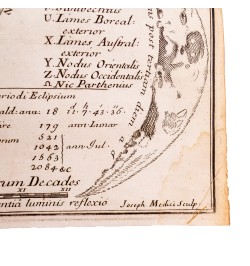 U. Limes Boreal:
exterior
X. Limes Austral:
exterior
Y. Nodus Orientalis
Z. Nodus Occidentalis
Ω Nic Parthenius
post tertium diem a
riodi Eclipsium
ald: ana: 18 11. 7. 43. 36.
179 ann Lunar
orum 521
1042 ann. Jul.
1563
2084
rum Decades
XI XII
luminis reflexio
Joseph Medici Sculp.